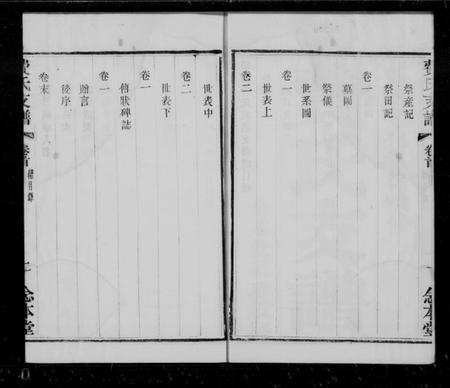 祭產記
祭田記
卷一
墓圖
祭儀
世系圖
卷一
世表上
卷二
世表中
卷二
世表下
卷一
傳狀碑誌
卷一
贈言
後序
卷末
費氏支譜
卷首
念本堂
費氏支譜
卷首
念本堂